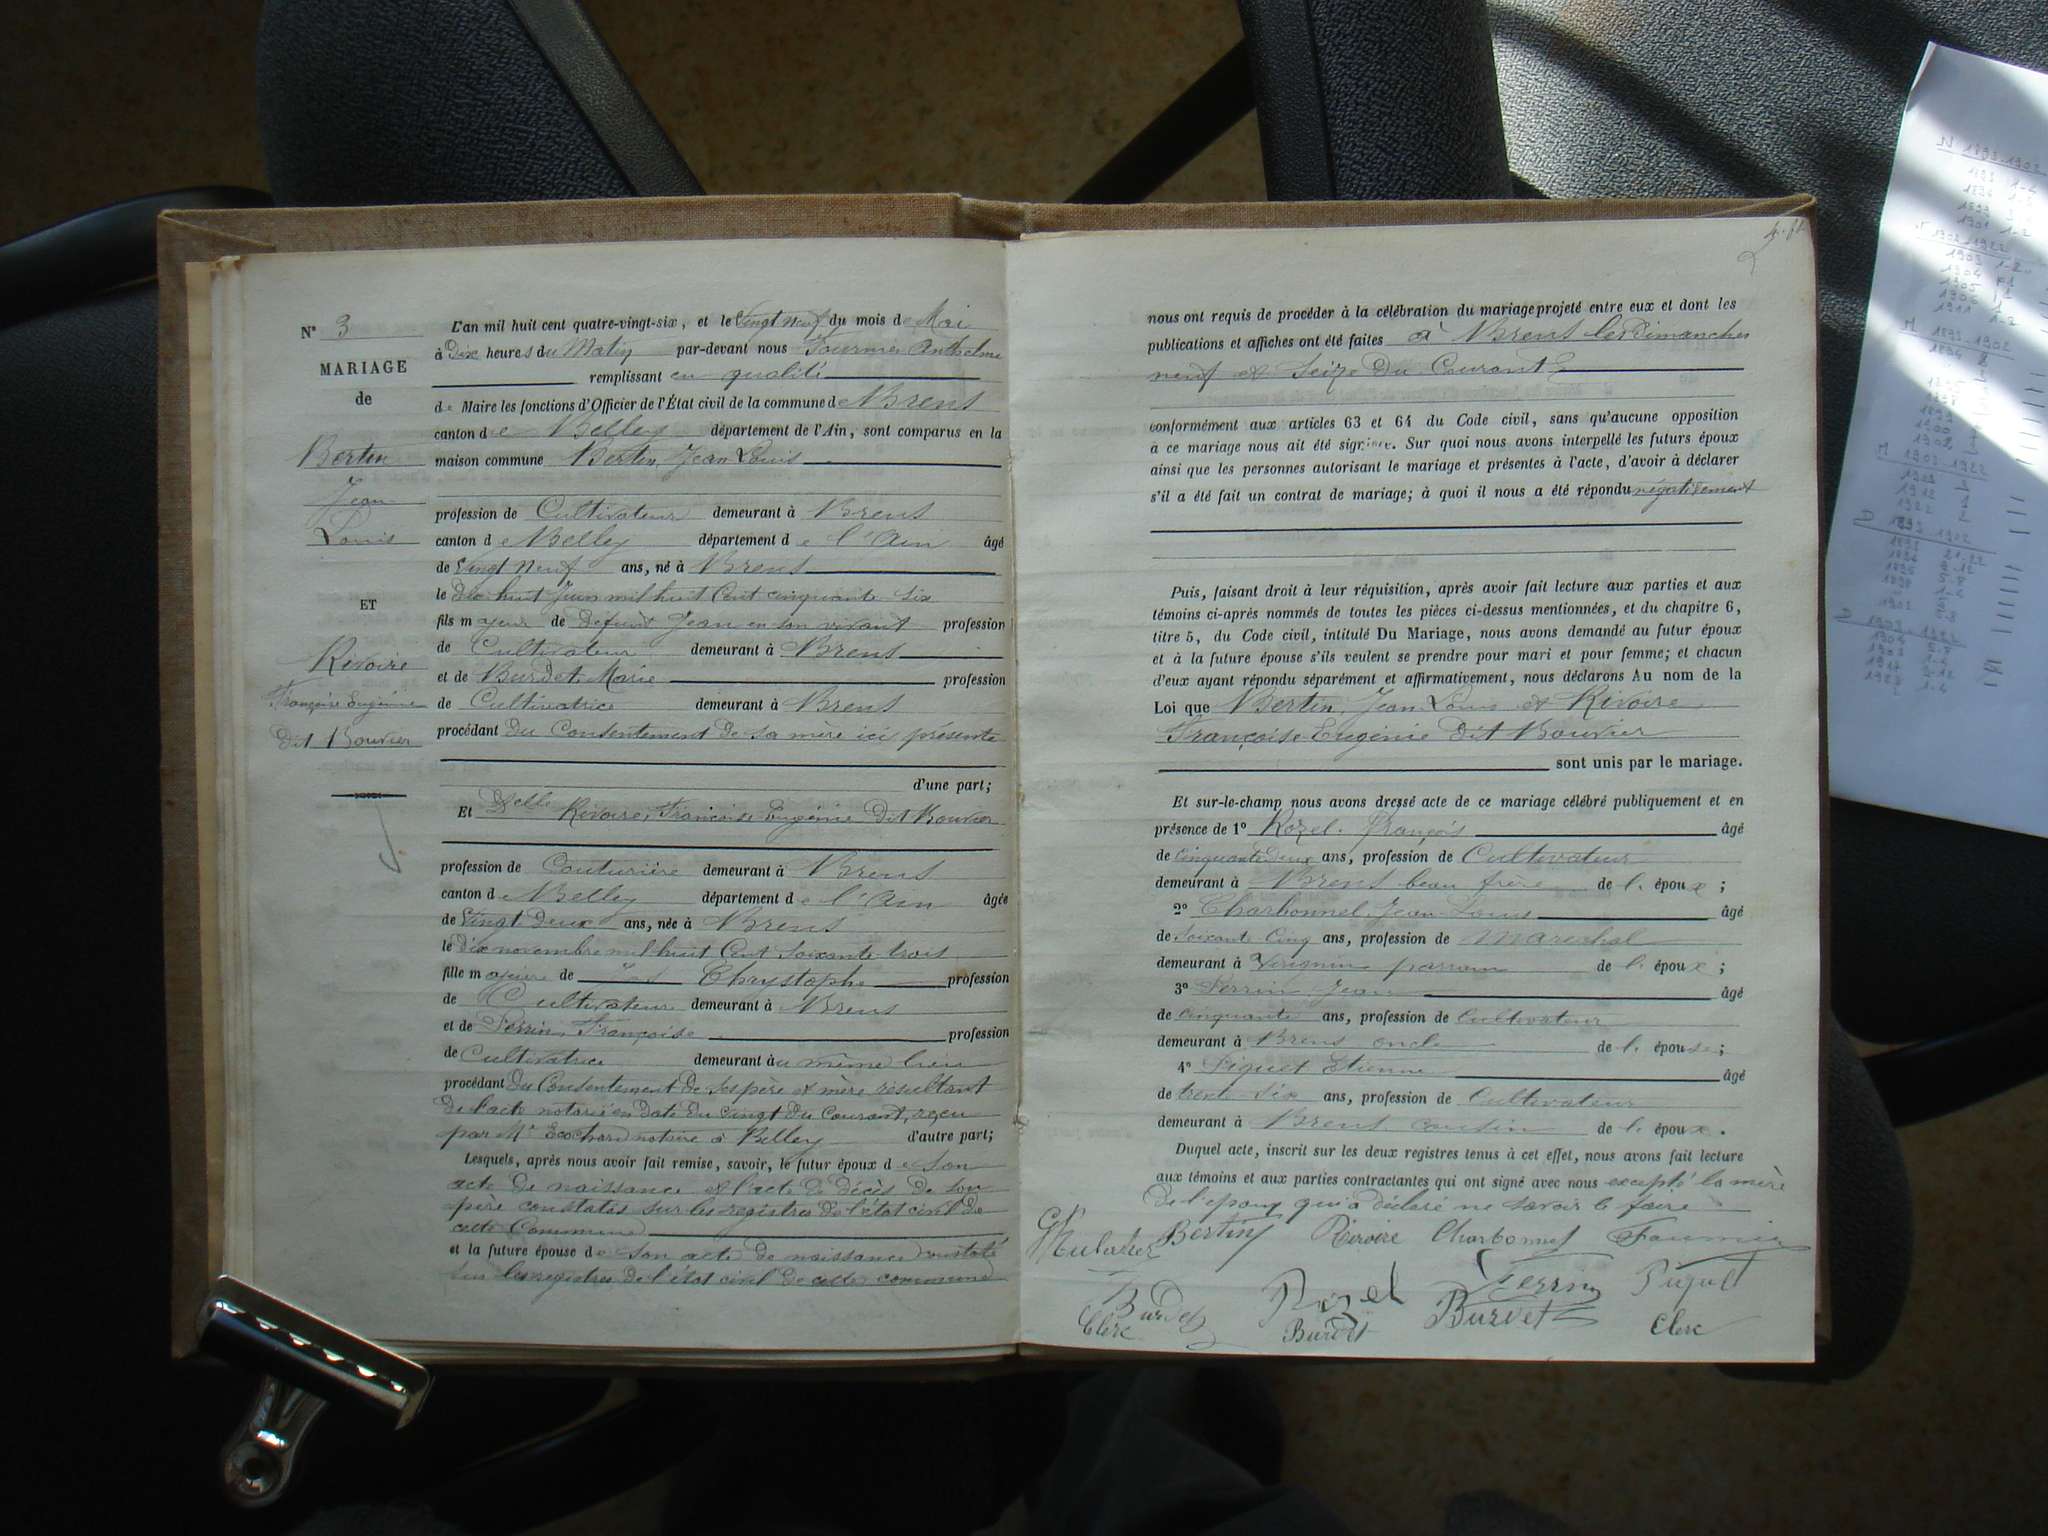 N° 3
MARIAGE
de
Bertin
Jean
Louis
ET
Rivoire
Françoise Eugénie
Dit Bouvier
L'an mil huit cent quatre-vingt-six, et le Vingt neuf du mois de Mai
à Dix heures du Matin par-devant nous Fournier Anthelme
remplissant en qualité
de Maire les fonctions d'Officier de l'État civil de la commune de Brens
canton de Belley département de l'Ain, sont comparus en la
maison commune Bertin, Jean Louis
profession de Cultivateur demeurant à Brens
canton de Belley département de l'Ain âgé
de Vingt Neuf ans, né à Brens
le Dix huit Juin mil huit Cent cinquante Six
fils majeur de Défunt Jean en son vivant profession
de Cultivateur demeurant à Brens
et de Burdet, Marie profession
de Cultivatrice demeurant à Brens
procédant Du Consentement De Sa mère ici présente
d'une part;
Et Delle Rivoire, Françoise Eugénie Dit Bouvier
profession de Couturière demeurant à Brens
canton de Belley département de l'Ain âgée
de Vingt Deux ans, née à Brens
le Dix novembre mil huit Cent Soixante trois
fille majeure de Chrystophe profession
de Cultivateur demeurant à Brens
et de Perrin, Françoise profession
de Cultivatrice demeurant au même lieu
procédant Du Consentement De Ses père et mère résultant
De l'acte notarié en Date du vingt Du Courant, reçu
par Me Ecochard notaire à Belley d'autre part;
Lesquels, après nous avoir fait remise, savoir, le futur époux de Son
acte De naissance et l'acte De Décès De Son
père constatés sur les registres De l'état civil De
cette Commune
et la future épouse de Son acte De naissance constaté
sur les registres De l'état civil De cette commune
nous ont requis de procéder à la célébration du mariage projeté entre eux et dont les
publications et affiches ont été faites à Brens les Dimanches
neuf et Seize Du Courant
conformément aux articles 63 et 64 du Code civil, sans qu'aucune opposition
à ce mariage nous ait été signifiée. Sur quoi nous avons interpellé les futurs époux
ainsi que les personnes autorisant le mariage et présentes à l'acte, d'avoir à déclarer
s'il a été fait un contrat de mariage; à quoi il nous a été répondu négativement
Puis, faisant droit à leur réquisition, après avoir fait lecture aux parties et aux
témoins ci-après nommés de toutes les pièces ci-dessus mentionnées, et du chapitre 6,
titre 5, du Code civil, intitulé Du Mariage, nous avons demandé au futur époux
et à la future épouse s'ils veulent se prendre pour mari et pour femme; et chacun
d'eux ayant répondu séparément et affirmativement, nous déclarons Au nom de la
Loi que Bertin, Jean Louis et Rivoire
Françoise Eugénie Dit Bouvier
sont unis par le mariage.
Et sur-le-champ nous avons dressé acte de ce mariage célébré publiquement et en
présence de 1° Rozel, François âgé
de cinquante Deux ans, profession de Cultivateur
demeurant à Brens beau frère de l'époux;
2° Charbonnel, Jean Louis âgé
de Soixante Cinq ans, profession de Maréchal
demeurant à Virignin parrain de l'époux;
3° Perrin Jean âgé
de cinquante ans, profession de Cultivateur
demeurant à Brens oncle de l'épouse;
4° Piguet Etienne âgé
de trente Six ans, profession de Cultivateur
demeurant à Brens cousin de l'époux.
Duquel acte, inscrit sur les deux registres tenus à cet effet, nous avons fait lecture
aux témoins et aux parties contractantes qui ont signé avec nous excepté la mère
De l'époux qui a déclaré ne savoir le faire
Bertin Rivoire Charbonnel Fournier
Burdet Rozel Perrin Piguet
Clerc Burdet Burdet Clerc